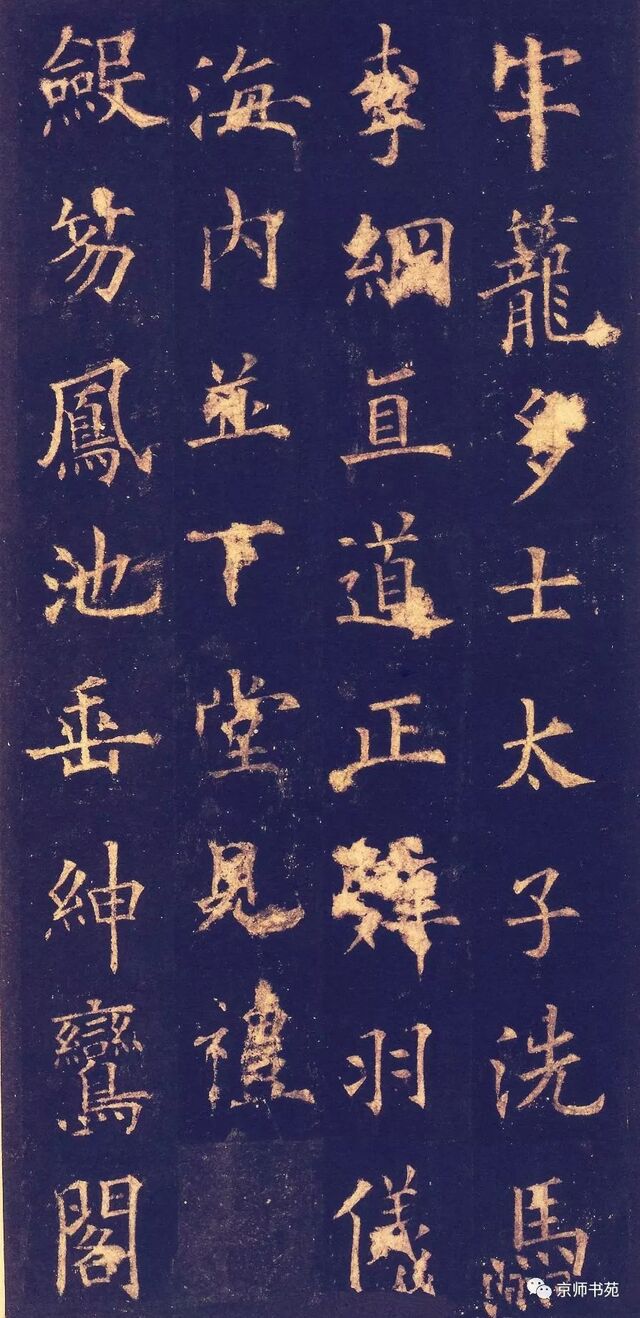 牢籠多士太子洗馬
李綱直道正辭羽儀
海內並下堂見禮
斂笏鳳池垂紳鸞閣
京师书苑